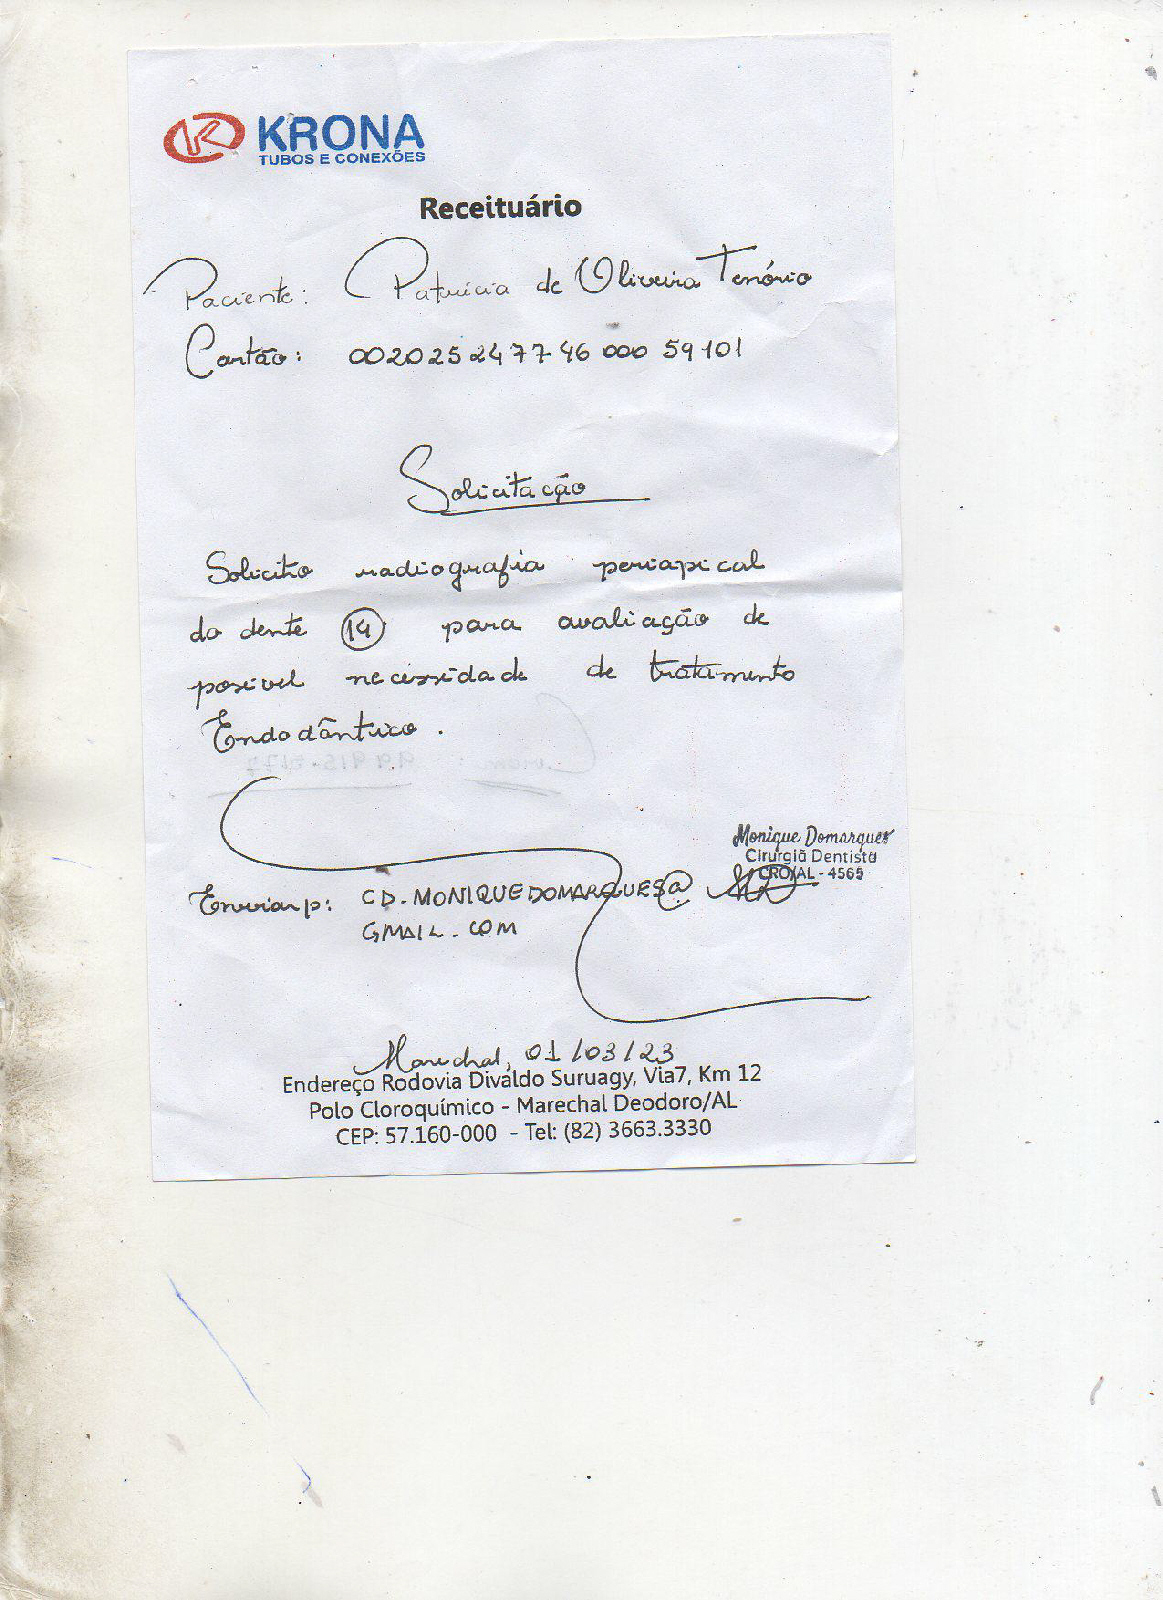 KRONA
TUBOS E CONEXÕES
Receituário
Paciente: Patrícia de Oliveira Tenório
Cartão: 002025 2477 46 000 59101
Solicitação
Solicito radiografia periapical
do dente 14 para avaliação de
possível necessidade de tratamento
Endodôntico.
Monique Domarques
Cirurgiã Dentista
CRO/AL - 4565
Enviar p: CD.MONIQUEDOMARQUES@
GMAIL.COM
Marechal, 01/03/23
Endereço Rodovia Divaldo Suruagy, Via7, Km 12
Polo Cloroquímico - Marechal Deodoro/AL
CEP: 57.160-000 - Tel: (82) 3663.3330